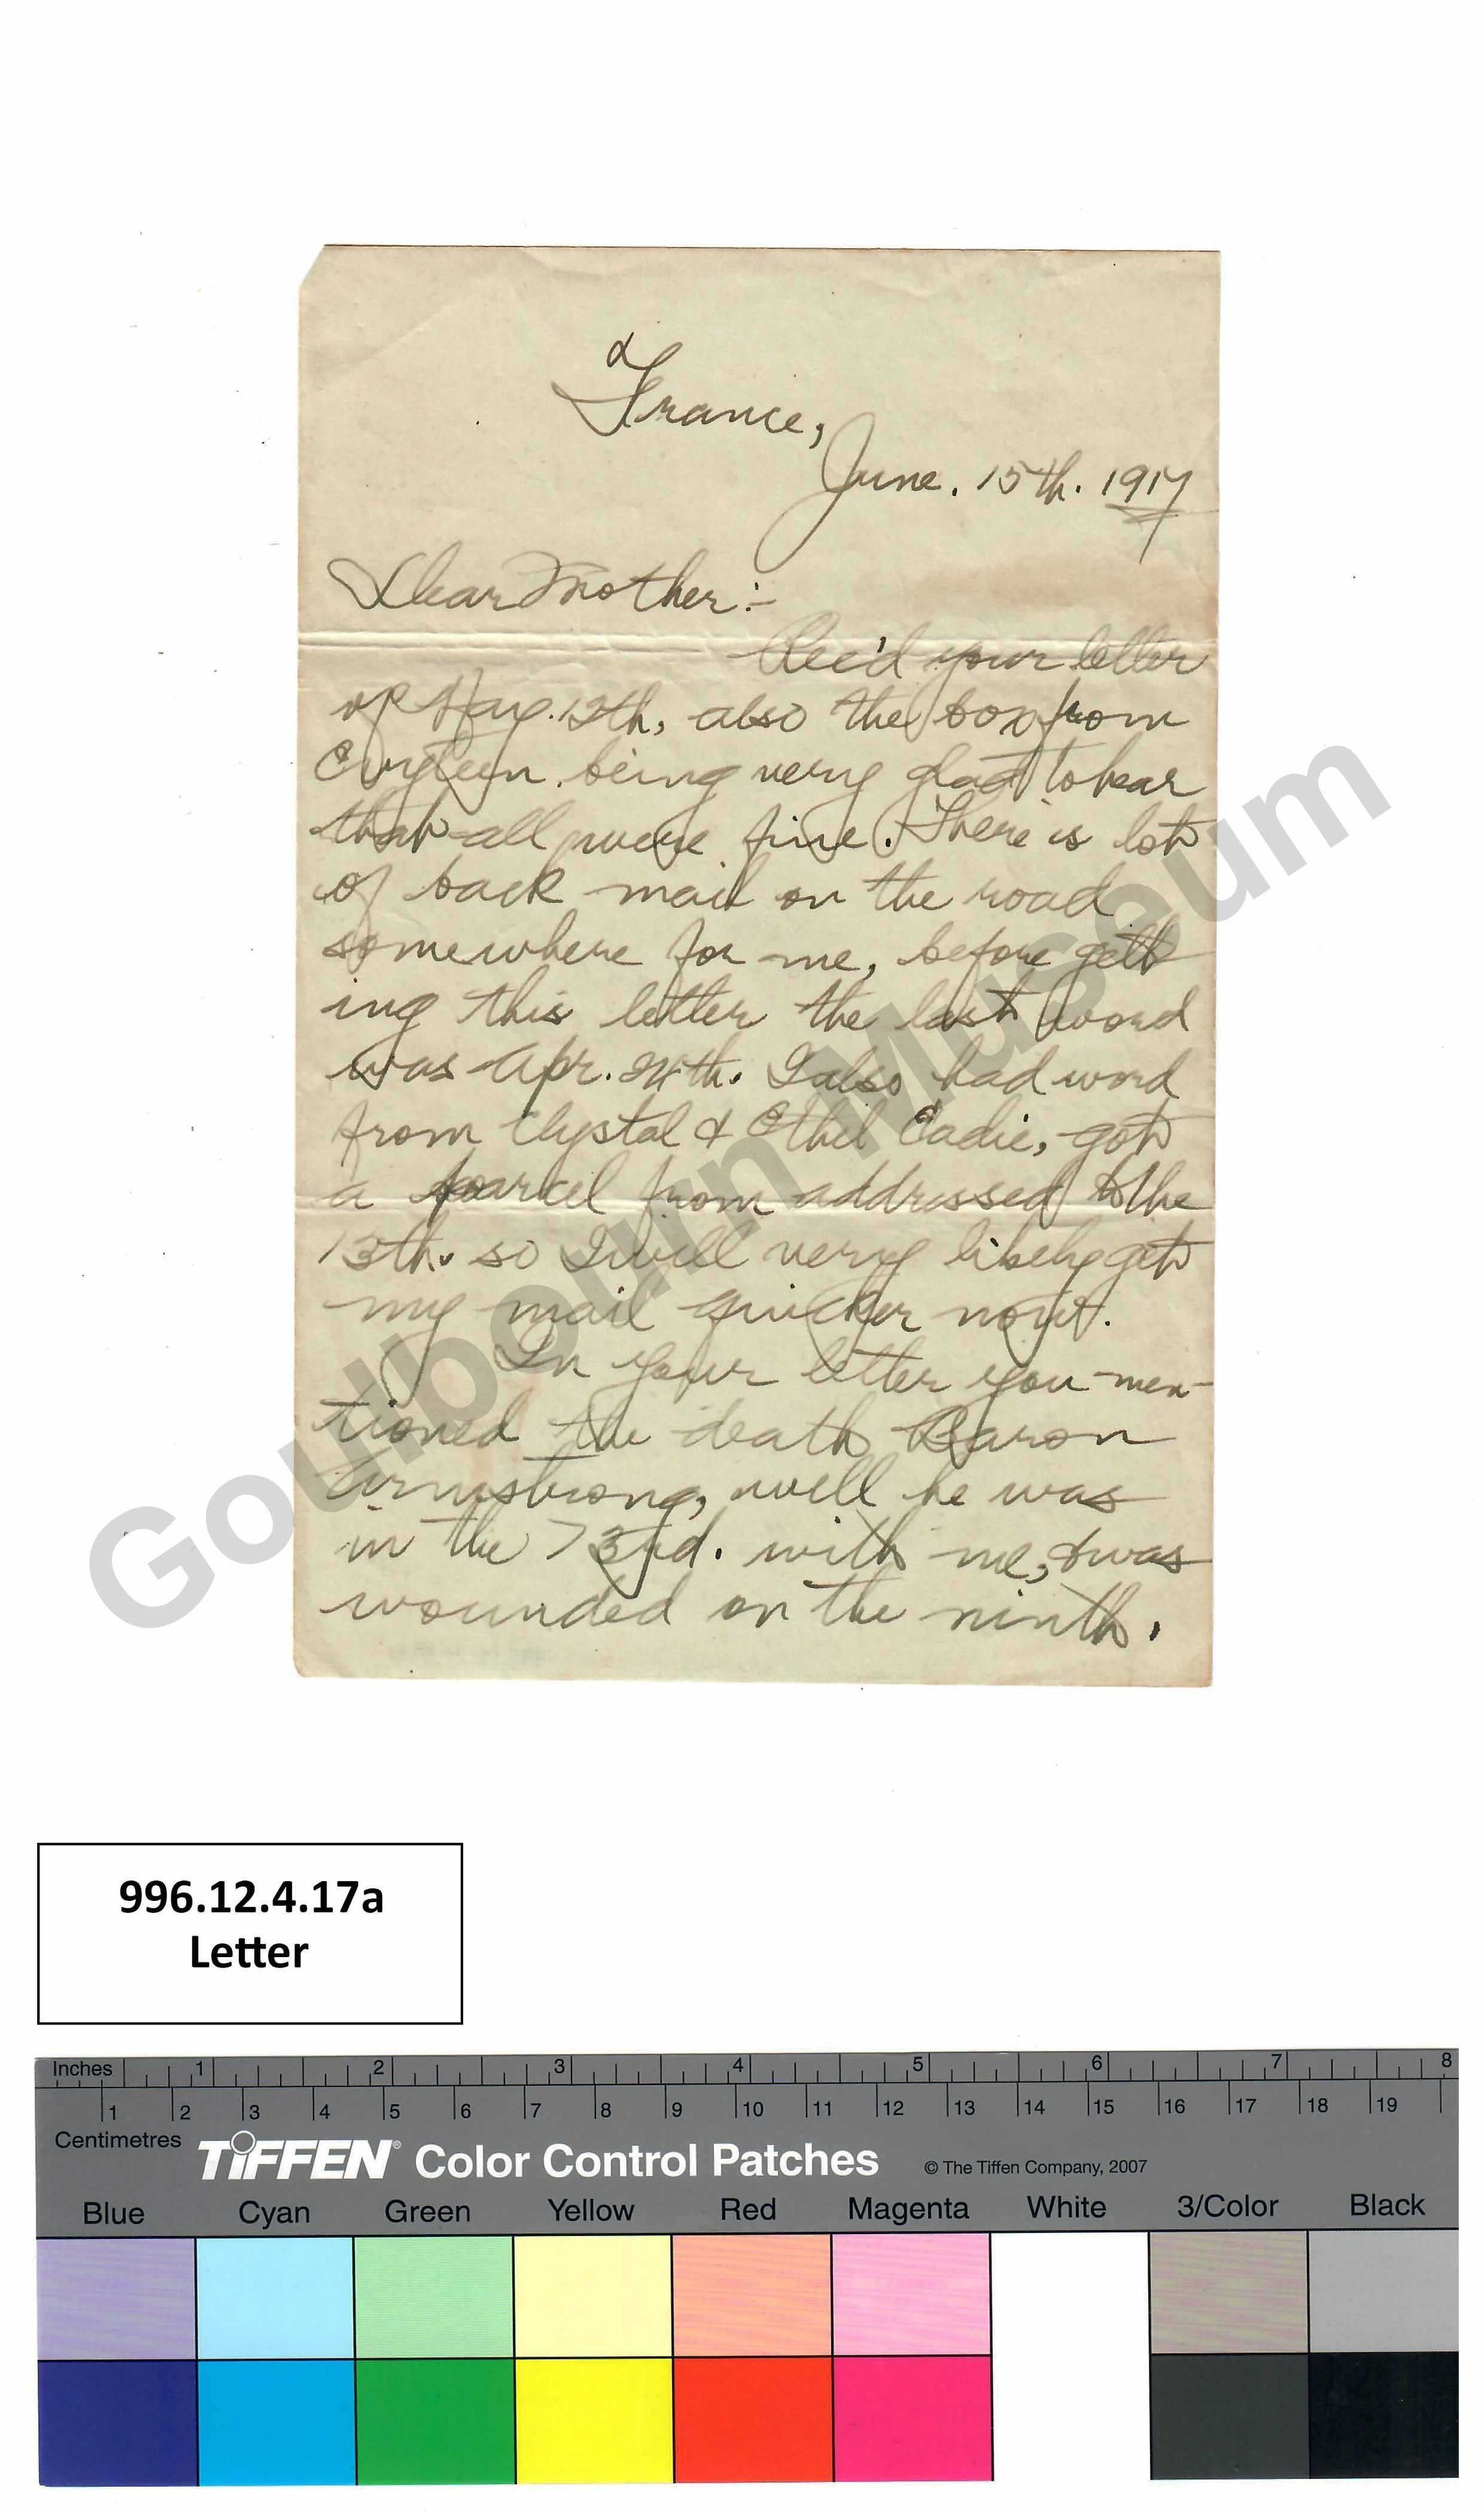 France,
June. 15th. 1917
Dear Mother:-
Rec'd your letter
of May. 12th, also the box from
being very glad to hear
that all were fine. There is lot
of back mail on the road
somewhere for me, before gett
ing this letter the last word
was Apr. 24th. I also had word
from Chystal & Ethel Eadie, got
a parcel from addressed to the
13th. so I will very likely get
my mail quicker now.
In your letter you men-
tioned the death Baron
Armstrong, well he was
in the 73rd. with me, & was
wounded on the ninth.
Goulbourn Museum
996.12.4.17a
Letter
Inches 1 2 3 4 5 6 7 8
1 2 3 4 5 6 7 8 9 10 11 12 13 14 15 16 17 18 19
Centimetres
TIFFEN® Color Control Patches © The Tiffen Company, 2007
Blue Cyan Green Yellow Red Magenta White 3/Color Black